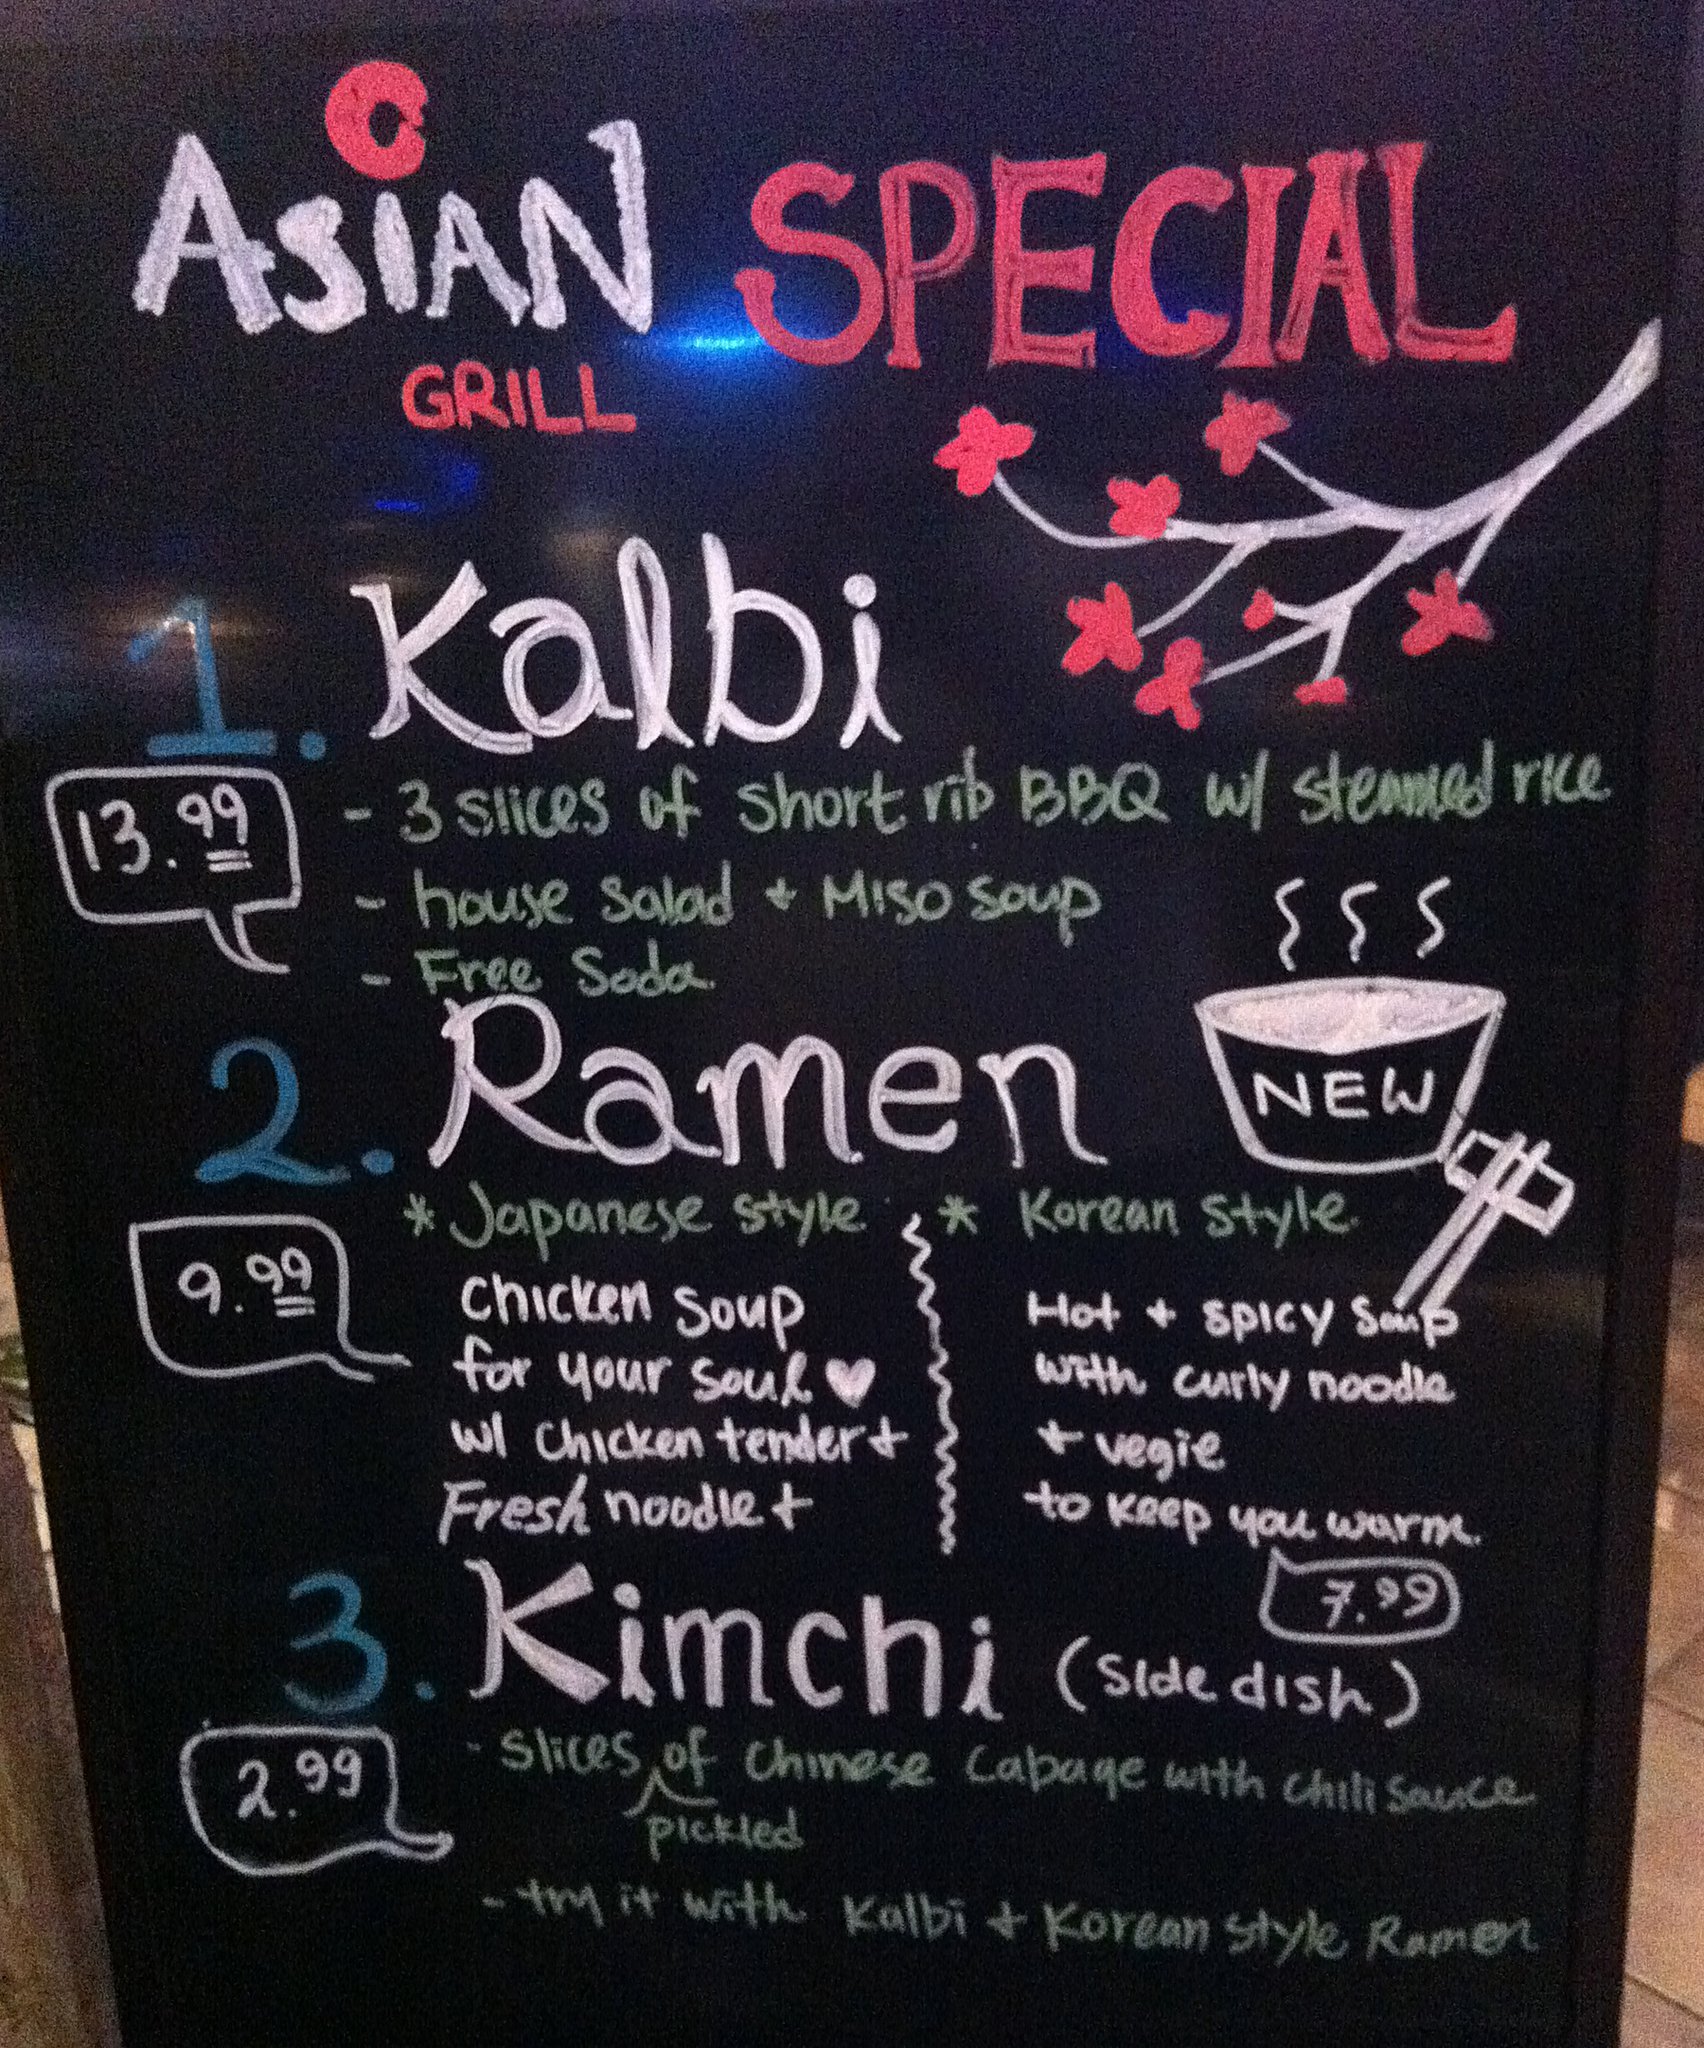 ASIAN SPECIAL
GRILL
1. Kalbi
13.99
- 3 slices of short rib BBQ w/ steamed rice
- house salad + Miso soup
- Free Soda
2. Ramen
NEW
9.99
* Japanese style
Chicken soup
for your soul ♥
w/ chicken tender +
Fresh noodle +
* Korean style
Hot + spicy soup
with curly noodle
+ vegie
to keep you warm.
7.99
3. Kimchi (side dish)
2.99
- slices of Chinese Cabage with chili sauce
pickled
- try it with Kalbi + Korean style Ramen